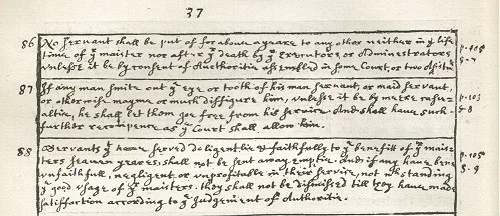 37
86 No servant shall be put of for above a yeare to any other neither in yᵉ life
time of yᵉ maister nor after yᵉ death by yᵉ Executors or Administrators
unlesse it be by consent of Authoritie assembled in some Court, or two Assistants
p-105
S-7
87 If any man smite out yᵉ eye or tooth of his man servant, or maid servant,
or otherwise mayme or much disfigure him, unlesse it be by meere casu-
altie, he shall let them goe free from his service. And shall have such
further recompence as yᵉ Court shall allow him.
p-103
S-8
88 Servants yᵗ have served deligentlie & faithfully to yᵉ benefitt of yᵉ mais-
ters seaven yeares, shall not be sent away emptie. And if any have bene
unfaithfull, negligent or unprofitable in their service, notwthstanding
yᵉ good usage of yᵉ maisters, they shall not be dismissed till they have made
satisfaction according to yᵉ Judgement of Authoritie.
p-105
S-9